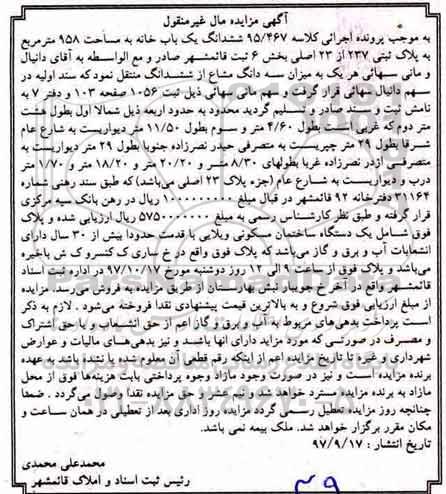 آگهی مزایده مال غیرمنقول
به موجب پرونده اجرائی کلاسه ۹۵/۴۶۷ ششدانگ یک باب خانه به مساحت ۹۵۸ مترمربع
به پلاک ثبتی ۲۳۷ از ۲۳ اصلی بخش ۶ ثبت قائمشهر صادر و مع الواسطه به آقای دانیال
و مانی سهائی هر یک به میزان سه دانگ مشاع از ششدانگ منتقل نمود که سند اولیه در
سهم دانیال سهائی قرار گرفت و سهم مانی سهائی ذیل ثبت ۱۰۵۶ صفحه ۱۰۳ و دفتر ۷ به
نامش ثبت و سند صادر و تسلیم گردید محدود به حدود اربعه ذیل شمالا اول بطول هشت
متر دوم که غربی است بطول ۴/۶۰ متر و سوم بطول ۱۱/۵۰ متر دیواریست به شارع عام
شرقا بطول ۲۹ متر چپریست به متصرفی حیدر نصرزاده جنوبا بطول ۲۹ متر دیواریست به
متصرفی آژدر نصرزاده غربا بطولهای ۸/۳۰ متر و ۲۰/۲۰ متر و ۱۸/۲۰ متر و ۱/۷۰ متر
درب و دیواریست به شارع عام (جزء پلاک ۲۳ اصلی میباشد) که طبق سند رهنی شماره
۲۱۱۶۴ دفترخانه ۹۲ قائمشهر در قبال مبلغ ۱۰۰۰۰۰۰۰۰۰ ریال در رهن بانک سپه مرکزی
قرار گرفته و طبق نظر کارشناس رسمی به مبلغ ۵۷۵۰۰۰۰۰۰۰ ریال ارزیابی شده و پلاک
فوق شامل یک دستگاه ساختمان مسکونی ویلایی با قدمت حدودا بیش از ۳۰ سال دارای
انشعابات آب و برق و گاز میباشد که پلاک فوق واقع در خ ساری ک کنسرو ک ش باخیره
میباشد و پلاک فوق از ساعت ۹ الی ۱۲ روز دوشنبه مورخ ۹۷/۱۰/۱۷ در اداره ثبت اسناد
قائمشهر واقع در آخر خ جویبار نبش بهارستان از طریق مزایده به فروش می‌رسد. مزایده
از مبلغ ارزیابی فوق شروع و به بالاترین قیمت پیشنهادی نقدا فروخته می‌شود. لازم به ذکر
است پرداخت بدهی‌های مربوط به آب و برق و گاز اعم از حق انشعاب و یا حق اشتراک
و مصرف در صورتی که مورد مزاید دارای آنها باشد و نیز بدهی‌های مالیات و عوارض
شهرداری و غیره تا تاریخ مزایده اعم از اینکه رقم قطعی آن معلوم شده یا نشده باشد به عهده
برنده مزایده است و نیز در صورت وجود مازاد وجوه پرداختی بابت هزینه‌ها فوق از محل
مازاد به برنده مزایده مسترد خواهد شد و نیم عشر و حق مزایده نقدا وصول می‌گردد. ضمنا
چنانچه روز مزایده تعطیل رسمی گردد مزایده روز اداری بعد از تعطیلی در همان ساعت و
مکان مقرر برگزار خواهد شد. ملک بیمه نمی باشد.
تاریخ انتشار : ۹۷/۹/۱۷
محمدعلی محمدی
رئیس ثبت اسناد و املاک قائمشهر
۳۹